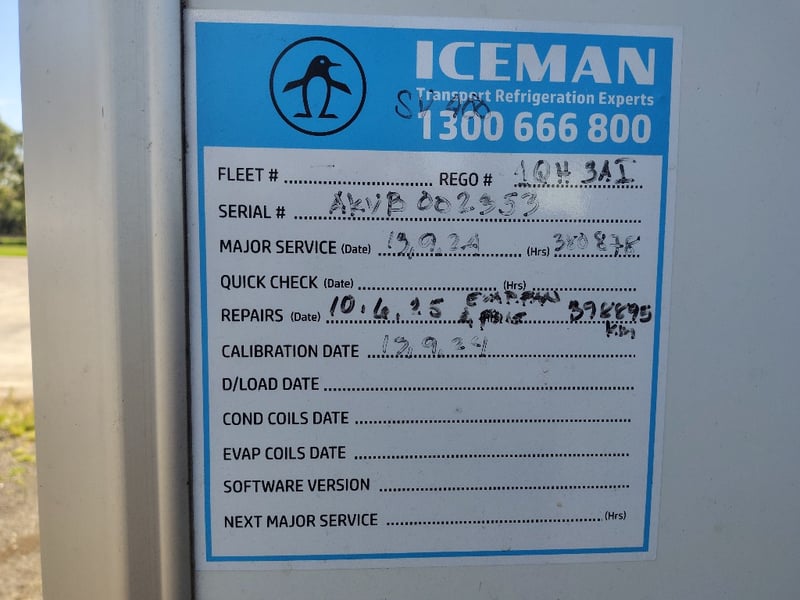 ICEMAN
Transport Refrigeration Experts
SV 400
1300 666 800
FLEET # REGO # 1QH 3AI
SERIAL # AKVB 002353
MAJOR SERVICE (Date) 13.9.24 (Hrs) 380878
QUICK CHECK (Date) (Hrs)
REPAIRS (Date) 10.4.25 398895
KM
CALIBRATION DATE 13.9.24
D/LOAD DATE
COND COILS DATE
EVAP COILS DATE
SOFTWARE VERSION
NEXT MAJOR SERVICE (Hrs)